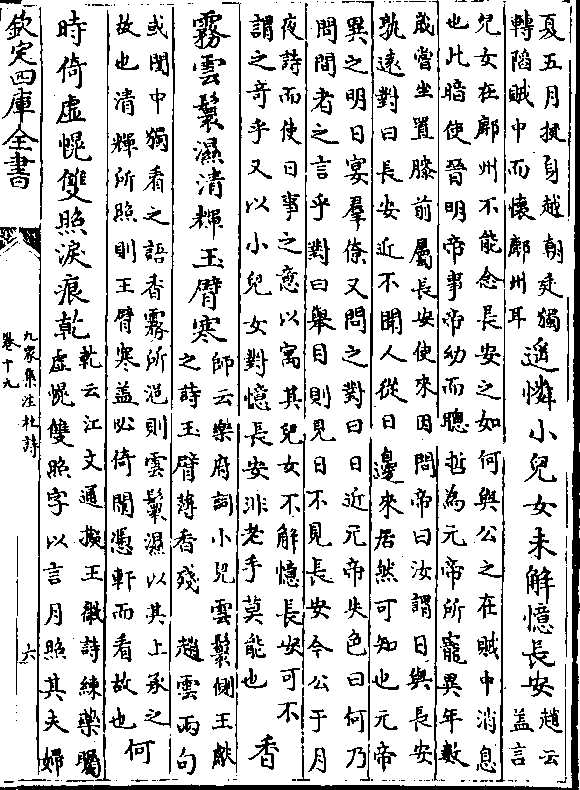 夏五月挺身越朝廷獨
轉陷賊中而懷鄜州耳
遙憐小兒女未解憶長安
趙云
蓋言
兒女在鄜州不能念長安之如何與公之在賊中消息
也此暗使晉明帝事帝幼而聰哲為元帝所寵異年數
歲嘗坐置膝前屬長安使來因問帝曰汝謂日與長安
孰遠對曰長安近不聞人從日邊來居然可知也元帝
異之明日宴羣僚又問之對曰日近元帝失色曰何乃
問間者之言乎對曰舉目則見日不見長安今公于月
夜詩而使日事之意以寓其兒女不解憶長安可不
謂之奇乎又以小兒女對憶長安非老手莫能也
香
霧雲鬟濕清輝玉臂寒
師云樂府詞小兒雲鬟側王獻
之詩玉臂薄香殘 趙云兩句
或閨中獨看之語香霧所浥則雲鬟濕以其上承之
故也清輝所照則玉臂寒蓋必倚闌憑軒而看故也
何
時倚虛幌雙照淚痕乾
乾云江文通擬王徽詩練藥矚
虛幌雙照字以言月照其夫婦
欽定四庫全書
九家集注杜詩
卷十九
六